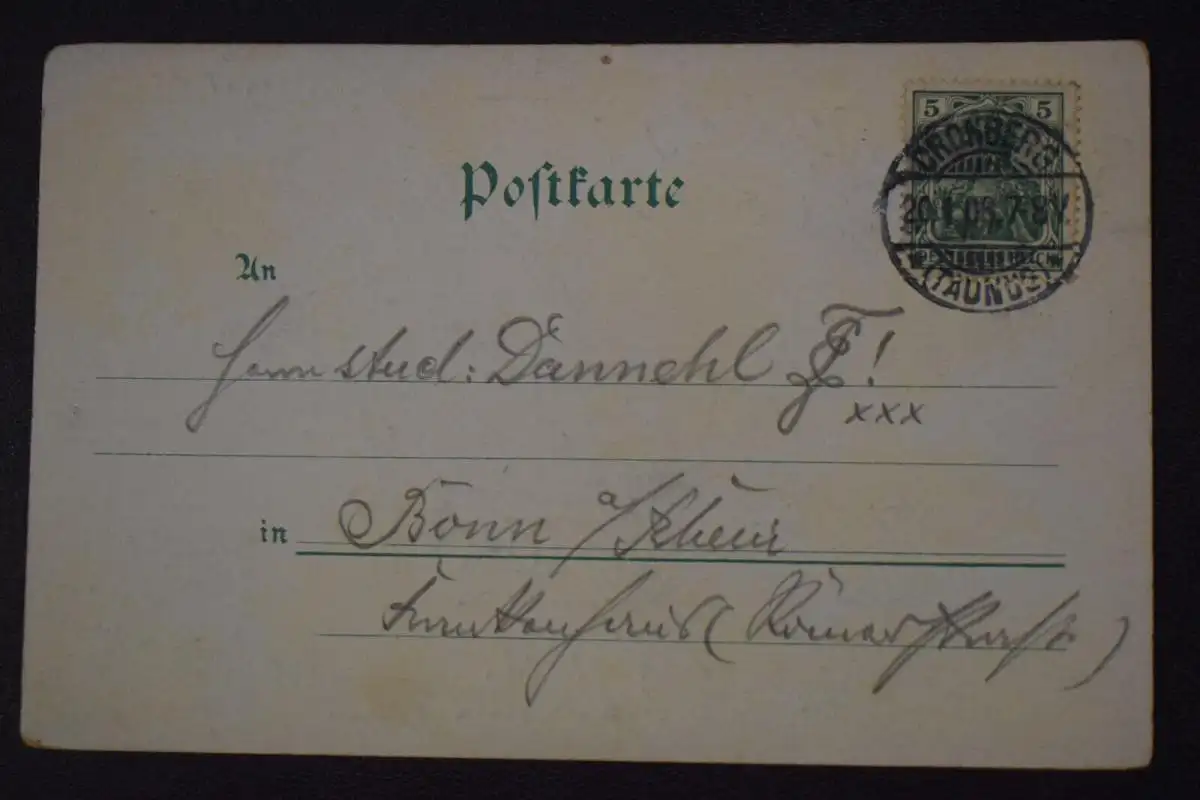 5 5
CRONBERG
20.1.03.7-8V
(TAUNUS)
Postkarte
An
Herrn stud: Dannehl !
xxx
in Bonn a/Rhein
Frankenhaus (Römerstrasse)